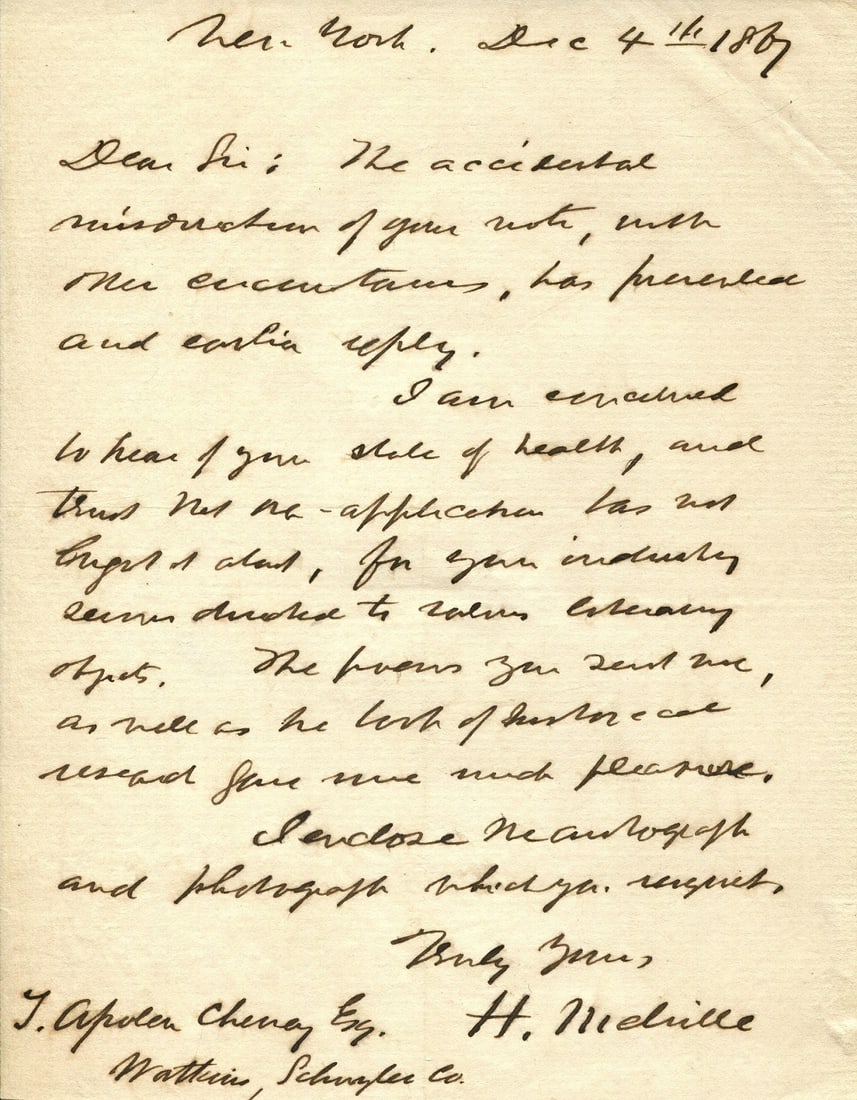 New York. Dec 4th 1867
Dear Sir: The accidental
misdirection of your note, with
other circumstances, has prevented
and earlier reply.
I am concerned
to hear of your state of health, and
trust that over-application has not
brought it about, for your industry
seems devoted to various literary
objects. The poems you sent me,
as well as the book of historical
research gave me much pleasure.
I enclose the autograph
and photograph which you request.
Truly Yours
H. Melville
T. Apoleon Cheney Esq.
Watkins, Schuyler Co.